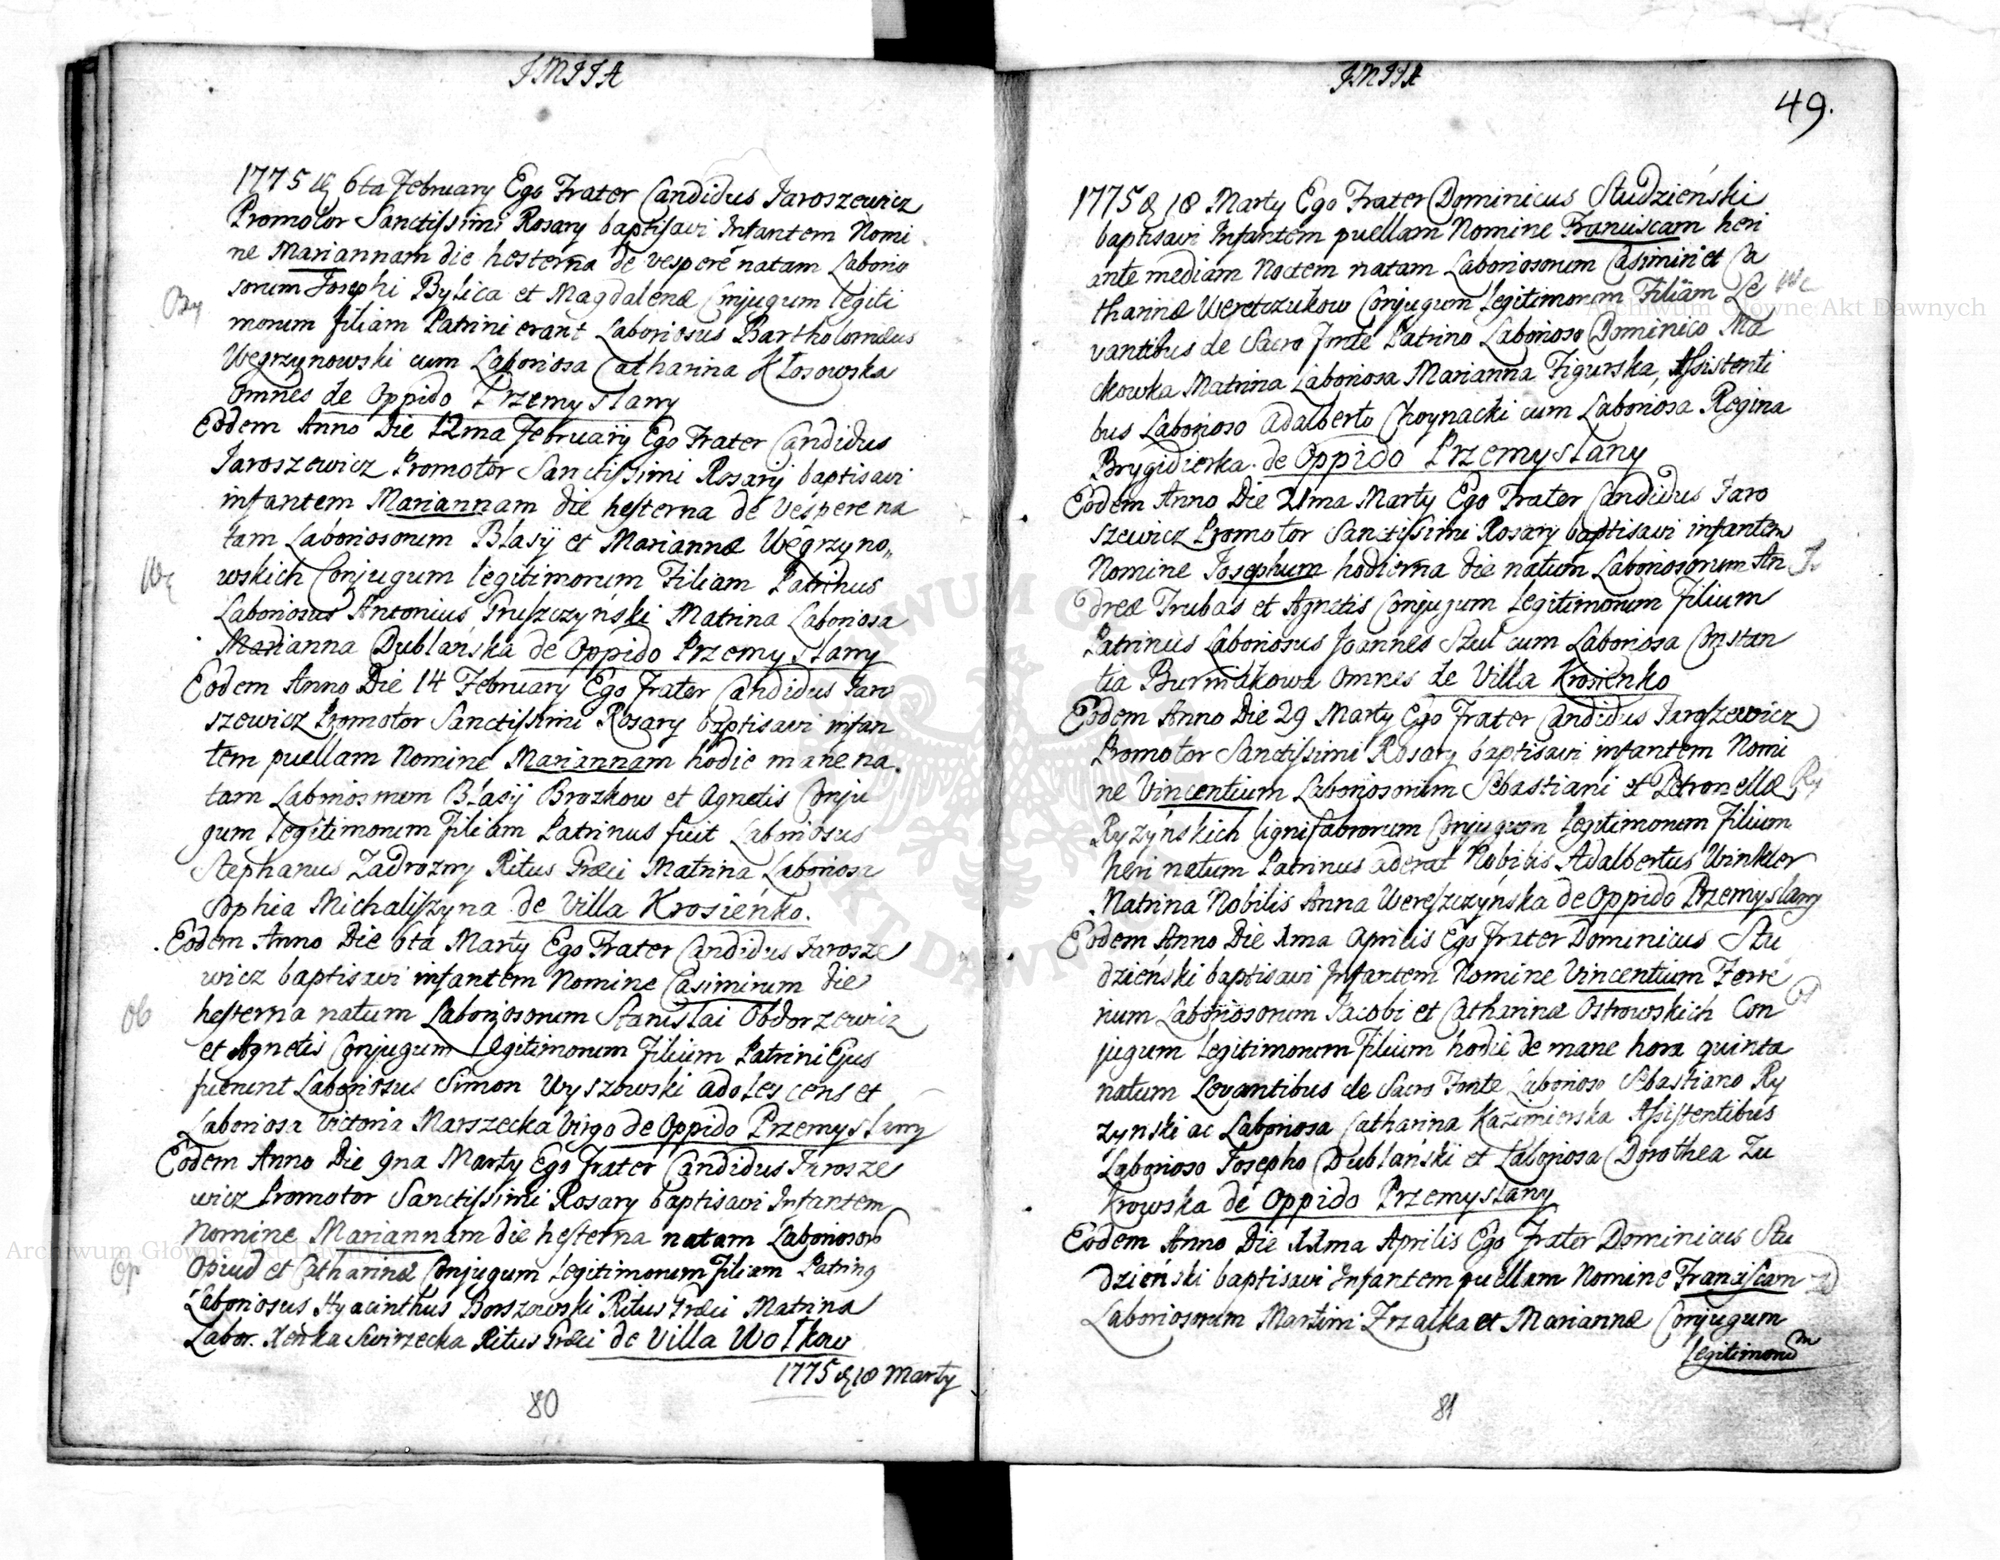 JMIJA
1775 d. 6ta February Ego Frater Candidus Jaroszewicz
Promotor Sanctissimi Rosary baptisavi Infantem Nomi
ne Mariannam die hesterna de vespere natam Laborio
sorum Josephi Bylica et Magdalenæ Conjugum legiti
By
morum filiam Patrini erant Laboriosus Bartholomæus
Węgrzynowski cum Laboriosa Catharina Kłosowska
omnes de Oppido Przemyslany
Eodem Anno Die 12ma Februarij Ego Frater Candidus
Jaroszewicz Promotor Sanctissimi Rosarij baptisavi
infantem Mariannam die hesterna de vespere na
tam Laboriosorum Blasij et Mariannæ Węgrzyno„
wskich Conjugum legitimorum Filiam Patrinus
Wę
Laboriosus Antonius Gruszczyński Matrina Laboriosa
Marianna Dublańska de Oppido Przemyslany
Eodem Anno Die 14 February Ego Frater Candidus Jaro
szewicz Promotor Sanctissimi Rosary baptisavi infan
tem puellam Nomine Mariannam hodie mane na.
tam Laboriosorum Blasij Brozkow et Agnetis Conju
gum legitimorum filiam Patrinus fuit Laboriosus
Stephanus Zadrozny Ritus Græci Matrina Laboriosa
Sophia Michaliszyna de Villa Krosieńko.
Eodem Anno Die 6ta Marty Ego Frater Candidus Jarosze
wicz baptisavi infantem Nomine Casimirum die
hesterna natum Laboriosorum Stanislai Obdorzewicz
Ob
et Agnetis Conjugum legitimorum filium Patrini Ejus
fuerunt Laboriosus Simon Wyszowski adolescens et
Laboriosa Victoria Marszecka Virgo de Oppido Przemyslany
Eodem Anno Die 9na Marty Ego Frater Candidus Jarosze
wicz Promotor Sanctissimi Rosary baptisavi Infantem
Nomine Mariannam die hesterna natam Laboriosor
Opiud et Catharinæ Conjugum legitimorum filiam Patrin9
Op
Laboriosus Hyacinthus Borszowski Ritus Græci Matrina
Labor. Xeńka Swirzecka Ritus Græci de Villa Wołkow
1775 d. 18 Marty
80
JMIJA
49.
1775 d. 18 Marty Ego Frater Dominicus Studzieński
baptisavi Infantem puellam Nomine Franciscam heri
ante mediam Noctem natam Laboriosorum Casimiri et Ca
tharinæ Weretczukow Conjugum legitimorum Filiam Le
We
vantibus de Sacro fonte Patrino Laborioso Dominico Ma
ckowka Matrina Laboriosa Marianna Figurska, Assistenti
bus Laborioso Adalberto Choynacki cum Laboriosa Regina
Brygidierka. de Oppido Przemyslany
Eodem Anno Die 21ma Marty Ego Frater Candidus Jaro
szewicz Promotor Sanctissimi Rosary baptisavi infantem
Nomine Josephum hodierna die natum Laboriosorum An
dreæ Trubas et Agnetis Conjugum legitimorum filium
Patrinus Laboriosus Joannes Szul cum Laboriosa Constan
tia Burmakowa Omnes de Villa Krosienko
Eodem Anno Die 29 Marty Ego Frater Candidus Jaroszewicz
Promotor Sanctissimi Rosary baptisavi infantem Nomi
ne Vincentium Laboriosorum Sebastiani et Petronellæ
Ry
Ryzyńskich lignifabrorum Conjugum legitimorum filium
heri natum Patrinus aderat Nobilis Adalbertus Winkler
Matrina Nobilis Anna Wereszczyńska de Oppido Przemyslany
Eodem Anno Die 1ma Aprilis Ego Frater Dominicus Stu
dzieński baptisavi Infantem Nomine Vincentium Ferre
rium Laboriosorum Jacobi et Catharinæ Ostrowskich Con
jugum legitimorum filium hodie de mane hora quinta
natum Levantibus de Sacro Fonte Laborioso Sebastiano Ry
zynski ac Laboriosa Catharina Kazimierska Assistentibus
Laborioso Josepho Dublański et Laboriosa Dorothea Zu
krowska de Oppido Przemyslany
Eodem Anno Die 11ma Aprilis Ego Frater Dominicus Stu
dzieński baptisavi Infantem puellam Nomine Franciscam
Laboriosorum Martini Zrzałka et Mariannæ Conjugum
legitimorum
81
Archiwum Główne Akt Dawnych
Archiwum Główne Akt Dawnych
ARCHIWUM GŁÓWNE AKT DAWNYCH